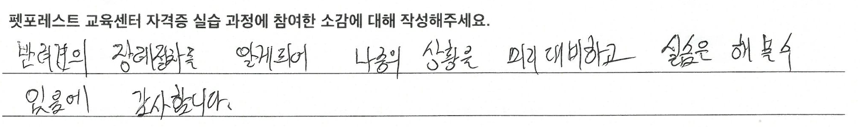 펫포레스트 교육센터 자격증 실습 과정에 참여한 소감에 대해 작성해주세요.
반려견의 장례절차를 알게되어 나중의 상황을 미리 대비하고 실습은 해 볼 수
있음에 감사합니다.